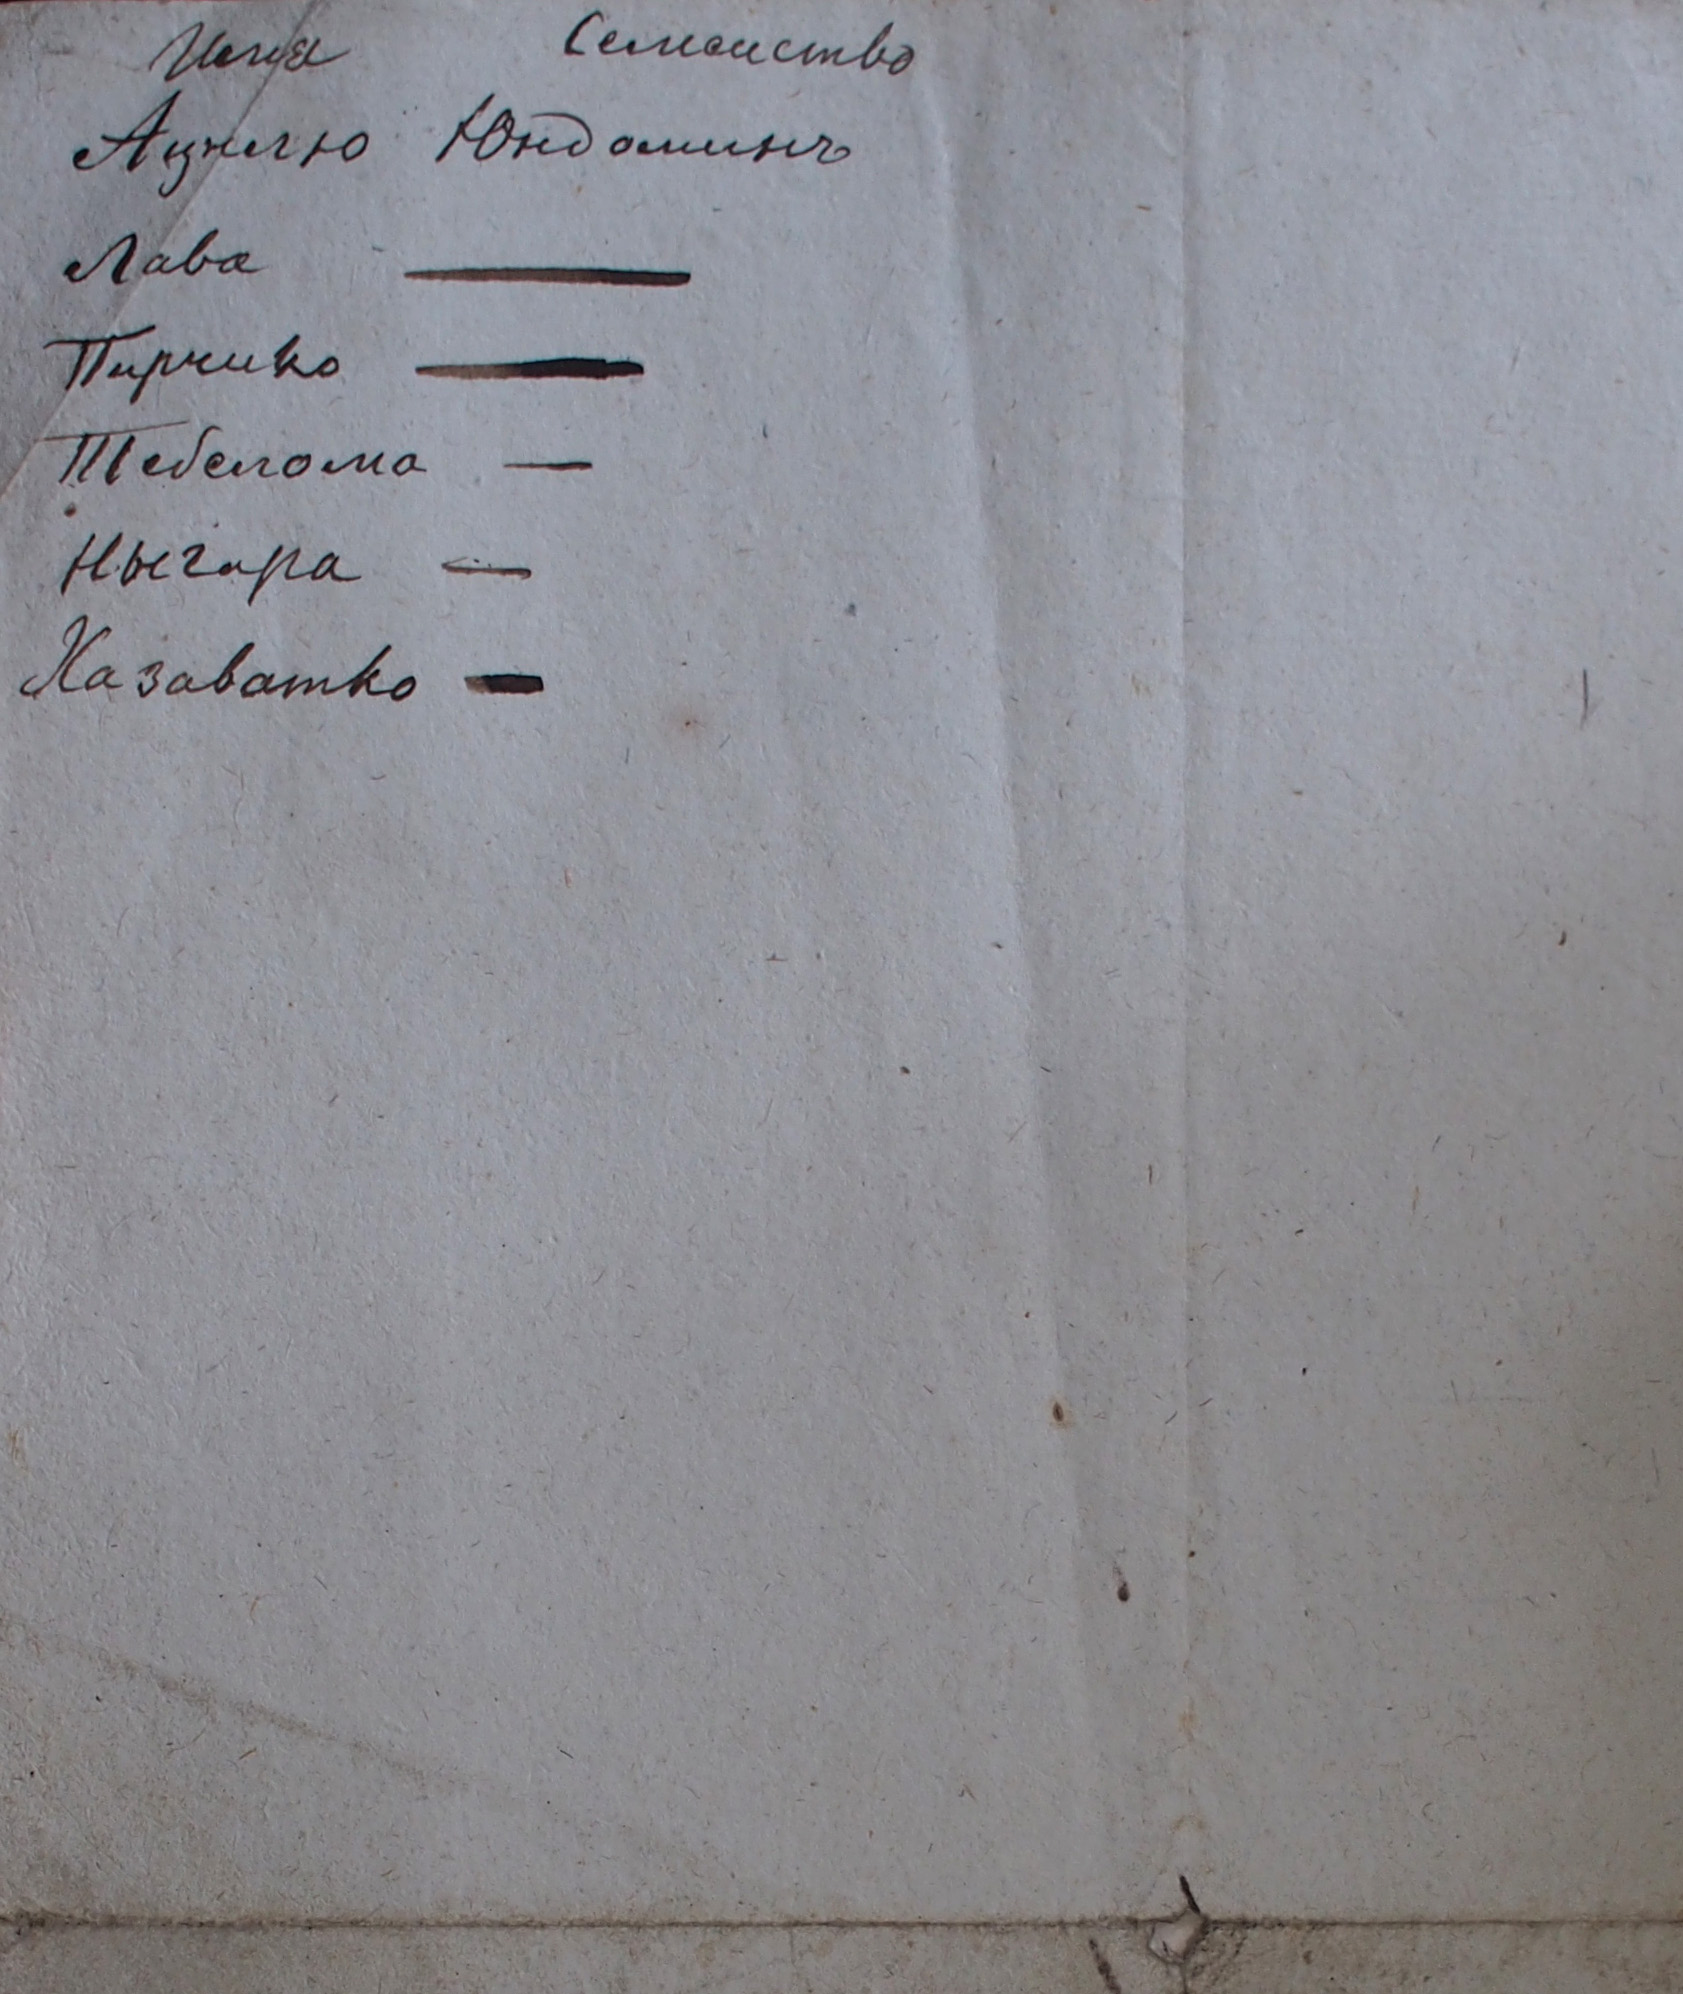 Имя Семеиство
Ацылю Юндоминъ
Лава —
Пирчико —
Тебелома —
Ныгара —
Казаватко —